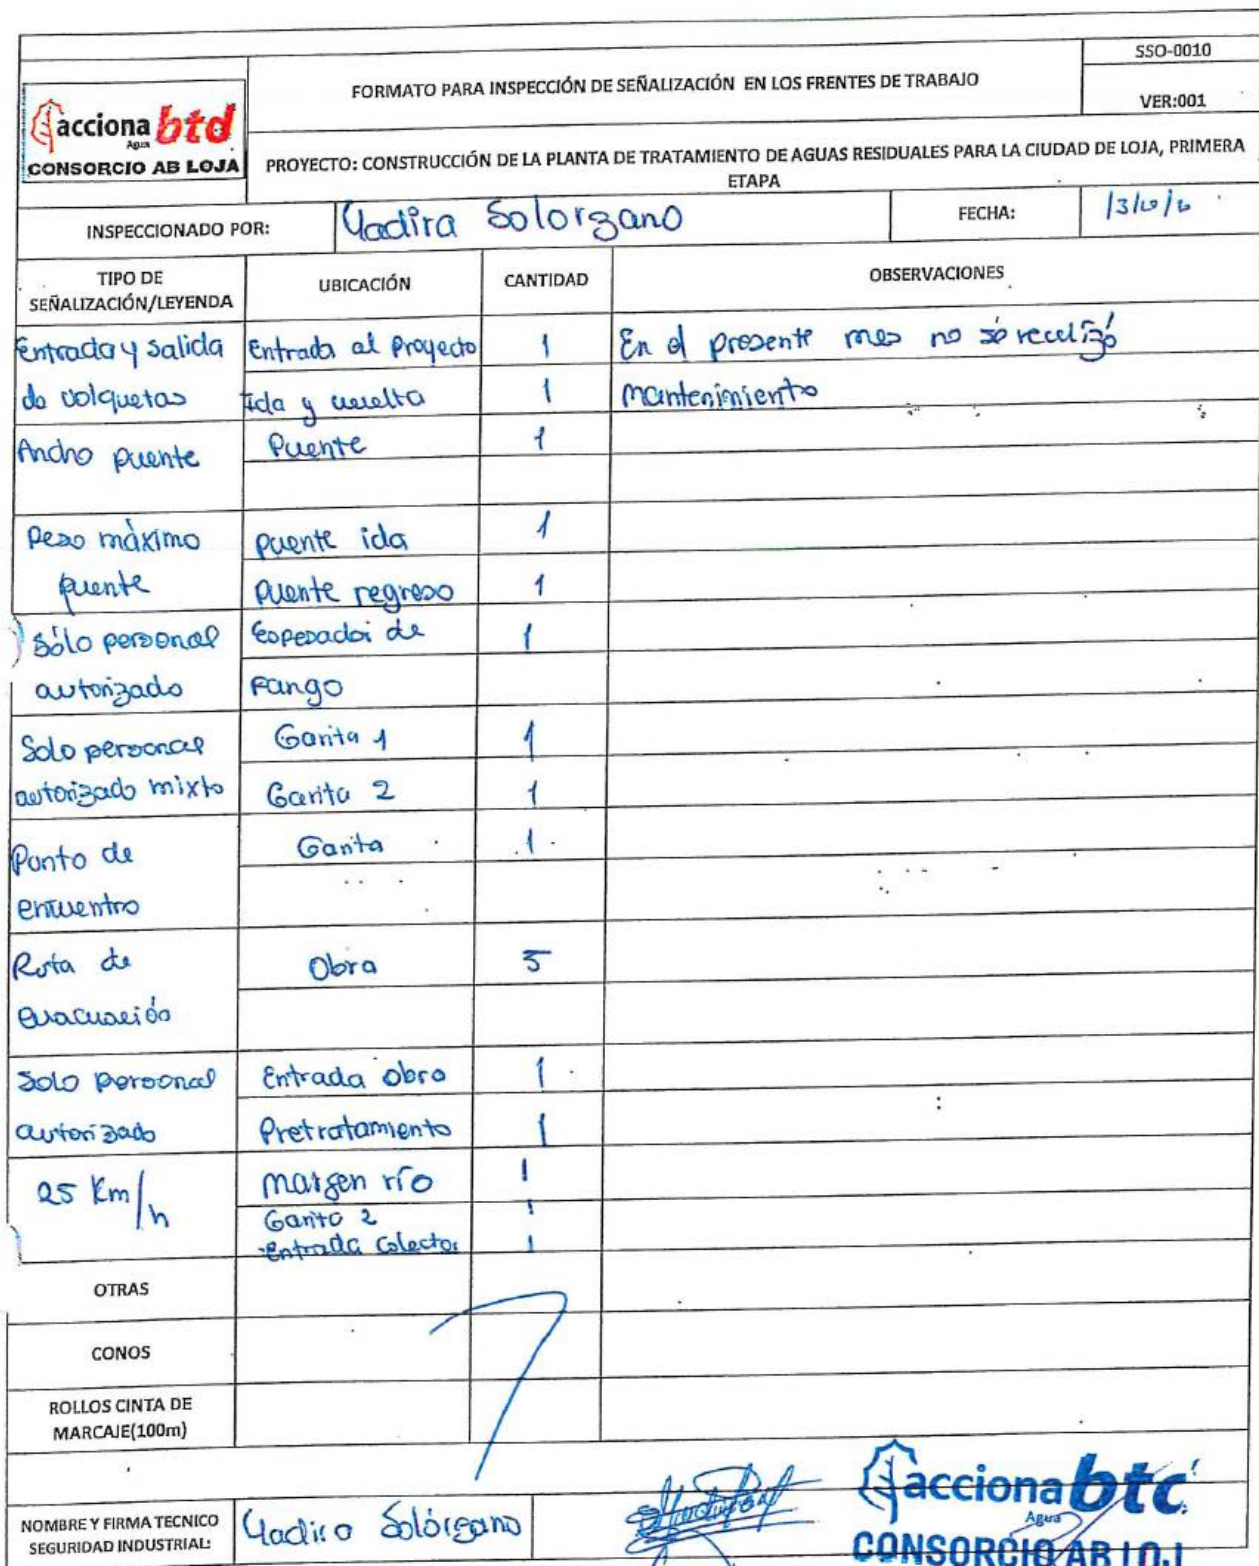 SSO-0010
FORMATO PARA INSPECCIÓN DE SEÑALIZACIÓN EN LOS FRENTES DE TRABAJO
VER:001
acciona btd
Agua
CONSORCIO AB LOJA
PROYECTO: CONSTRUCCIÓN DE LA PLANTA DE TRATAMIENTO DE AGUAS RESIDUALES PARA LA CIUDAD DE LOJA, PRIMERA
ETAPA
INSPECCIONADO POR: Yadira Solorzano FECHA:
TIPO DE SEÑALIZACIÓN/LEYENDA UBICACIÓN CANTIDAD OBSERVACIONES
Entrada y salida Entrada al Proyecto 1 En el presente mes no se realizó
de volquetas Ida y vuelta 1 mantenimiento
Ancho puente Puente 1
Peso máximo puente ida 1
puente puente regreso 1
Sólo personal Espesador de 1
autorizado Fango
Solo personal Garita 1 1
autorizado mixto Garita 2 1
Punto de Garita 1
encuentro
Ruta de Obra 5
evacuación
Solo personal Entrada obra 1
autorizado Pretratamiento 1
25 Km/h margen río 1
Garita 2 1
Entrada Colector 1
OTRAS
CONOS
ROLLOS CINTA DE
MARCAJE(100m)
NOMBRE Y FIRMA TECNICO
SEGURIDAD INDUSTRIAL: Yadira Solórzano
acciona btc
Agua
CONSORCIO AB LOJ